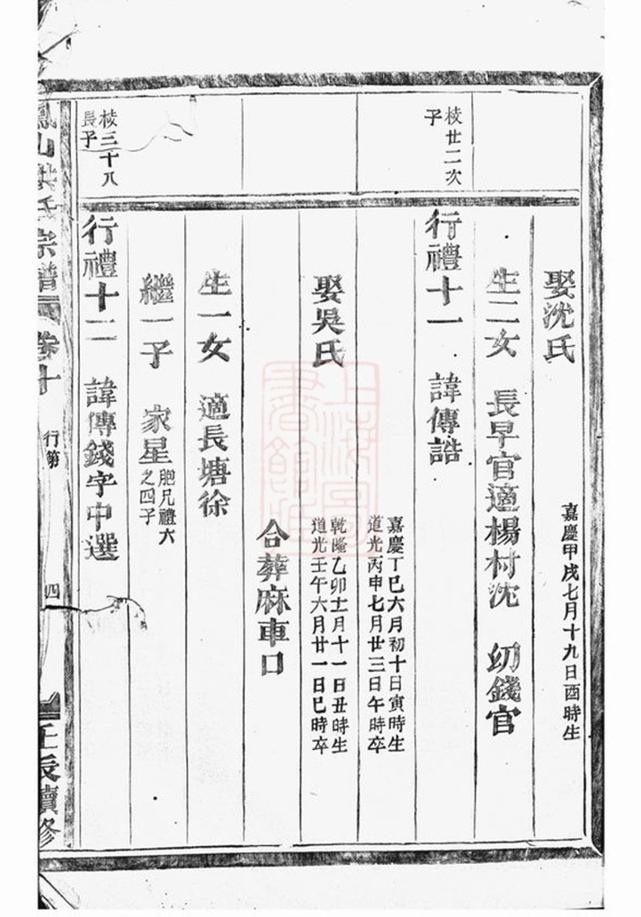 娶沈氏
嘉慶甲戌七月十九日酉時生
生二女 長早官適楊村沈 幼錢官
棱廿二次
子
行禮十一 諱傳誥
嘉慶丁巳六月初十日寅時生
道光丙申七月廿三日午時卒
娶吳氏
乾隆乙卯十二月十一日丑時生
道光壬午六月廿一日巳時卒
合葬麻車口
生一女 適長塘徐
繼一子 家星
胞兄禮六
之四子
棱三十八
長子
行禮十二 諱傳錢字中選
鳳山洪氏宗譜 卷十 行第 四 壬辰續修
上海圖書館藏